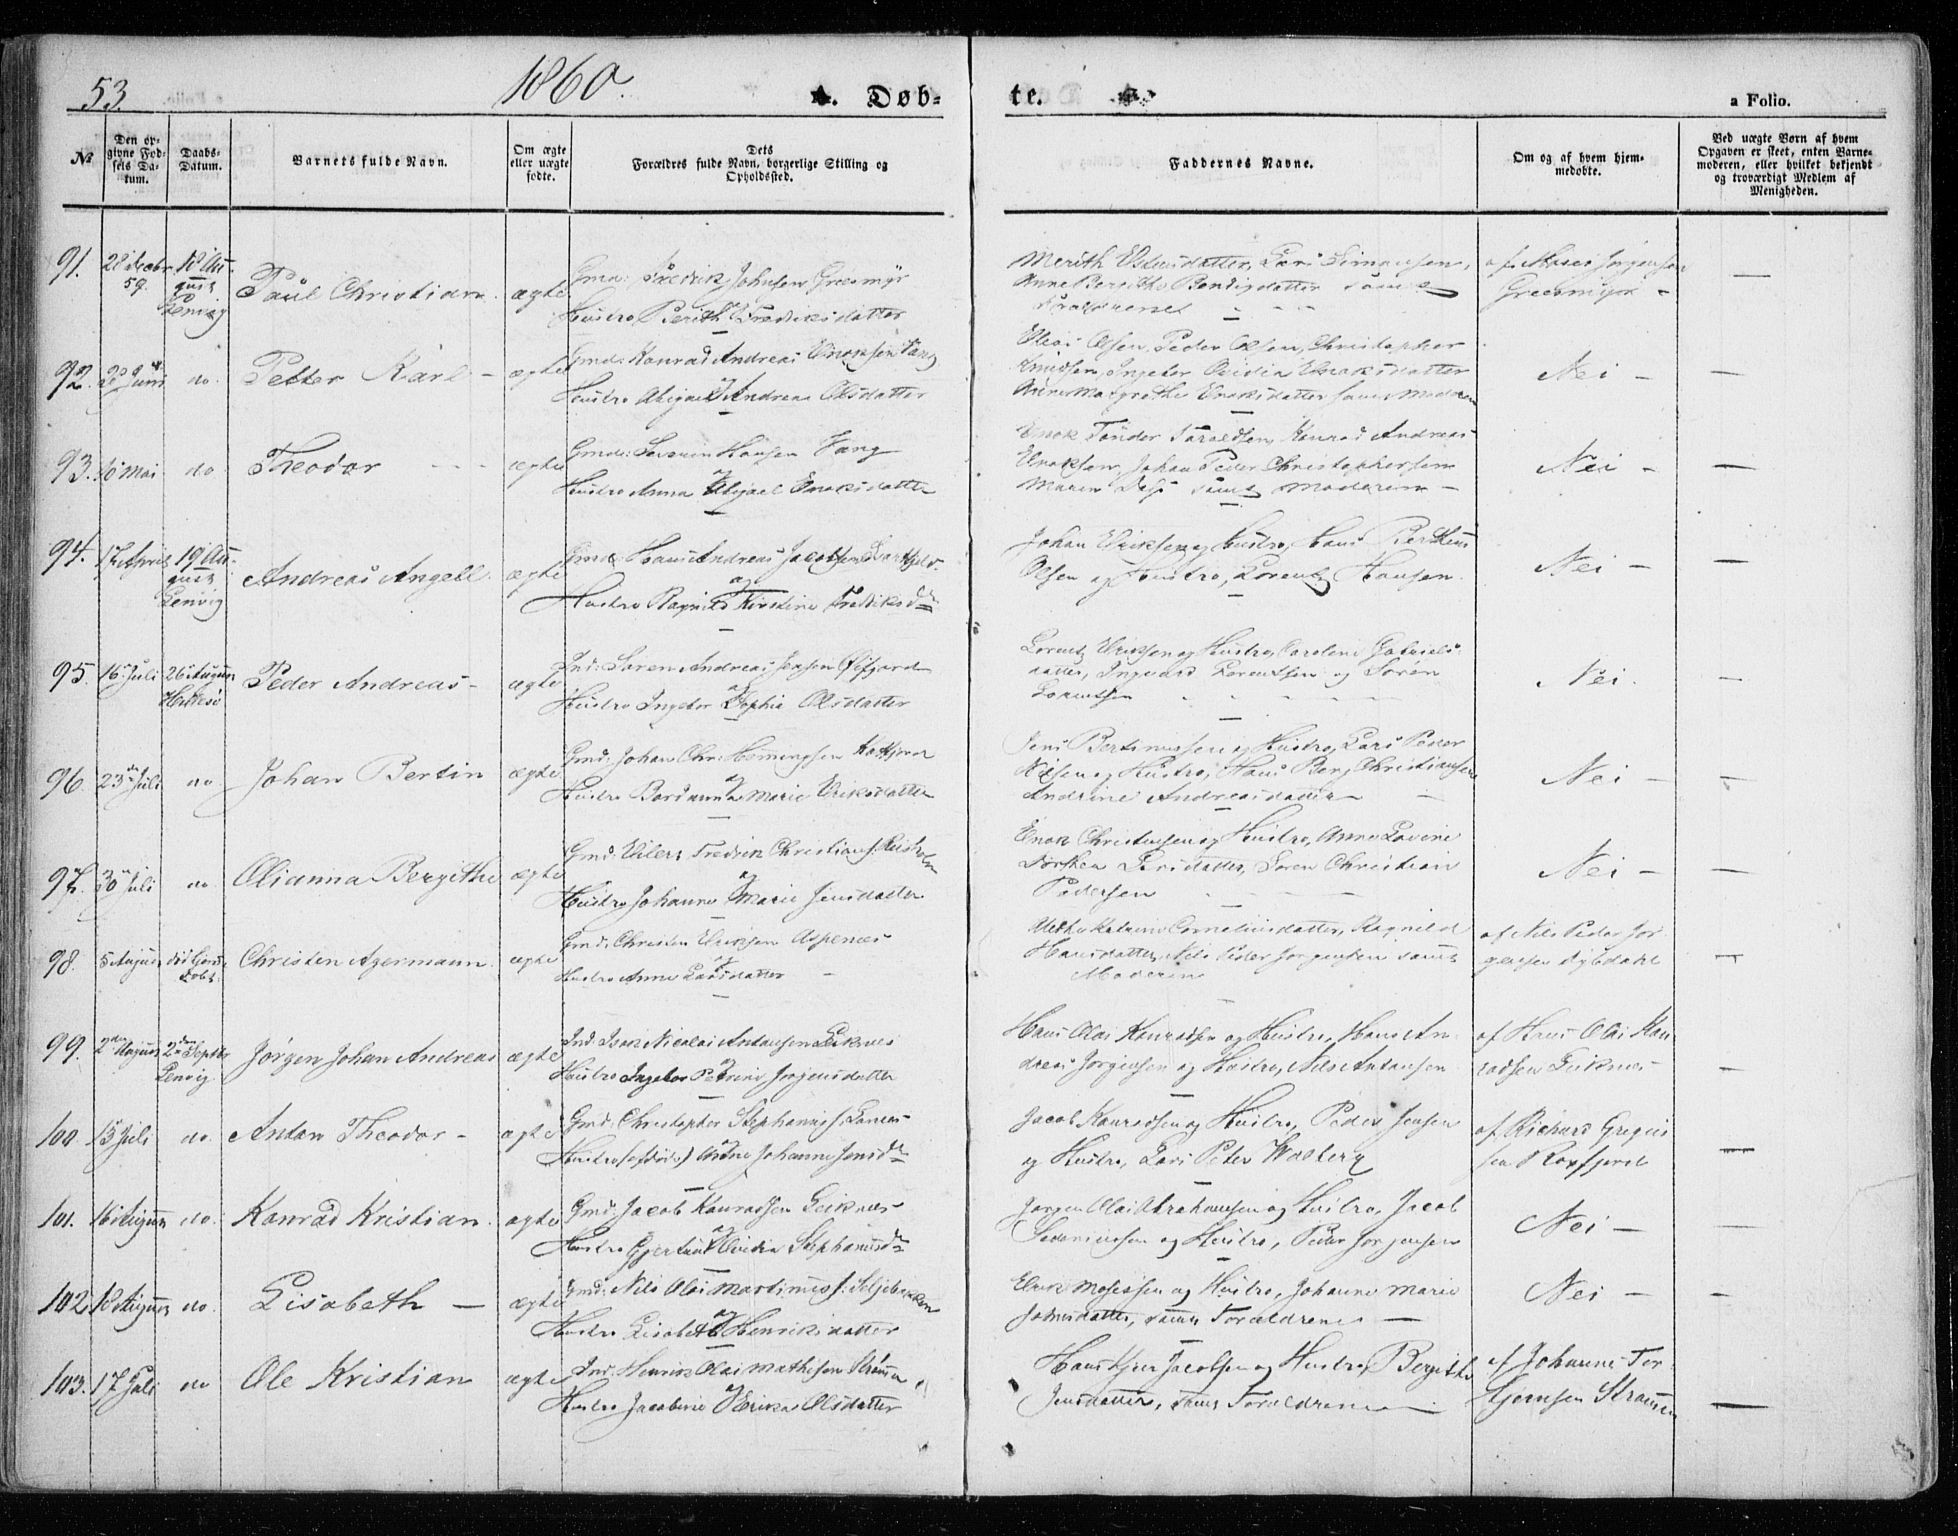 53.
1860.
A. Døb-
te.
a Folio.
№
Den op-
givne Fød-
sels Da-
tum.
Daabs-
Datum.
Barnets fulde Navn.
Om ægte
eller uægte
fødte.
Dets
Forældres fulde Navn, borgerlige Stilling og
Opholdssted.
Faddernes Navne.
Om og af hvem hjem-
medøbte.
Ved uægte Børn af hvem
Opgaven er skeet, enten Barne-
moderen, eller hvilket bekjendt
og troværdigt Medlem af
Menigheden.
91.
59.
18 Au-
gust
Lenvig
Paul Christian
ægte
Gmd: Fredrik Johnsen Greesmyr
og
Hustro Berith Fredriksdatter
Lars Simonsen,
Anne Berithe Bendigsdatter samt
af Moses Jørgensen
Greesmyr -
—
92.
Juni
do.
Petter Karl -
ægte
Gmd: Konrad Andreas Enoksen Vang
og
Hustro Abigael Andrea Olsdatter
Olai Olsen, Peder Olsen, Christopher
Knudsen, Ingebor Ovidia Enoksdatter
Anne Margrethe Enoksdatter samt Moderen
Nei -
—
93.
6 Mai
do
Theodor - -
ægte
Gmd: Sørenn Hansen Vang
og
Hustro Anna Abigael Enoksdatter
Enok Tønder Taraldsen, Konrad Andreas
Enoksen, Johan Peder Christophersen
Maren samt Moderen -
Nei -
—
94.
17 April
19 Au-
gust
Lenvig
Andreas Angell
ægte
Gmd: Hans Andreas Jacobsen
og
Hustro Ragnild Kirstine Fredriksd
Johan Eriksen og Hustro, Hans Bertheus
Olsen og Hustro, Lorentz Hansen.
Nei -
—
95.
16 Juli
26 August
Hillesø
Peder Andreas -
ægte
Ind: Søren Andreas Jensen Øifjord
og
Hustro Ingebor Sophie Olsdatter
Lorentz Eriksen og Hustro, Caroline Gabriels-
datter, Ingvard Lorentsen og Søren
Lorentsen
Nei.
—
96.
23 Juli
do
Johan Bertin
ægte
Gmd: Johan Chr: Hemmingsen Katfjord
og
Hustro Bordanna Marie Eriksdatter
Jens Bertinussen og Hustro, Lars Peder
Nilsen og Hustro, Hans Berg Christiansen
Andrine Andreasdatter -
Nei -
—
97.
30 Juli
do
Olianna Bergithe
ægte
Gmd: Eilert Fredrik Christians:
og
Hustro Johanne Marie Jensdatter
Enok Christensen og Hustro, Anne Lovine
Dorthea Larsdatter, Søren Christian
Pedersen
Nei -
—
98.
5 August
Christen Agermann
ægte
Gmd: Christen Eriksen Aspenæs
og
Hustro Anne Larsdatter -
Katrine Corneliusdatter, Ragnild
Hansdatter, Nils Peder Jørgensen samt
Moderen
af Nils Peder Jør-
gensen Rybdahl
—
99.
2den August
2den Septbr
Lenvig
Jørgen Johan Andreas
ægte
Ind: Isak Nicolai Antonsen Leiknes
og
Hustro Ingebor Petrine Jørgensdatter
Hans Olai Konradsen og Hustro, Hans An-
dreas Jørgensen og Hustro, Nils Antonsen
af Hans Olai Kon-
radsen Leiknes -
—
100.
15 Juli
do.
Anton Theodor -
ægte
Gmd: Christopher Stephanus:
Hustro (afdøde) Anne Johanne Jensd
Jacob Konradsen og Hustro, Peder Jensen
og Hustro, Lars Peter Wolberg
af Richard Gregus-
sen Rossfjord
—
101.
16 August
do.
Konrad Kristian.
ægte
Gmd: Jacob Konradsen Leiknes -
og
Hustro Gjertrud Ovidia Stephanusd
Jørgen Olai Abrahamsen og Hustro, Jacob
Sederiussen og Hustro, Peder Jørgensen
Nei -
—
102.
18 August
do.
Lisabeth -
ægte
Gmd: Nils Olai Martinuss: Seljebakken
og
Hustro Lisabeth Henriksdatter
Erik Mosessen og Hustro, Johanne Marie
Johnsdatter, samt Forældrene -
Nei -
—
103.
17 Juli
do
Ole Kristian
ægte
Ind: Henrik Olai Mathisen Strømmen
og
Hustro Jacobine Erika Olsdatter
Hans Kjær Jacobsen og Hustro, Bergithe
Jensdatter, samt Forældrene -
af Johannes Tor-
bjørnsen Strømmen
—